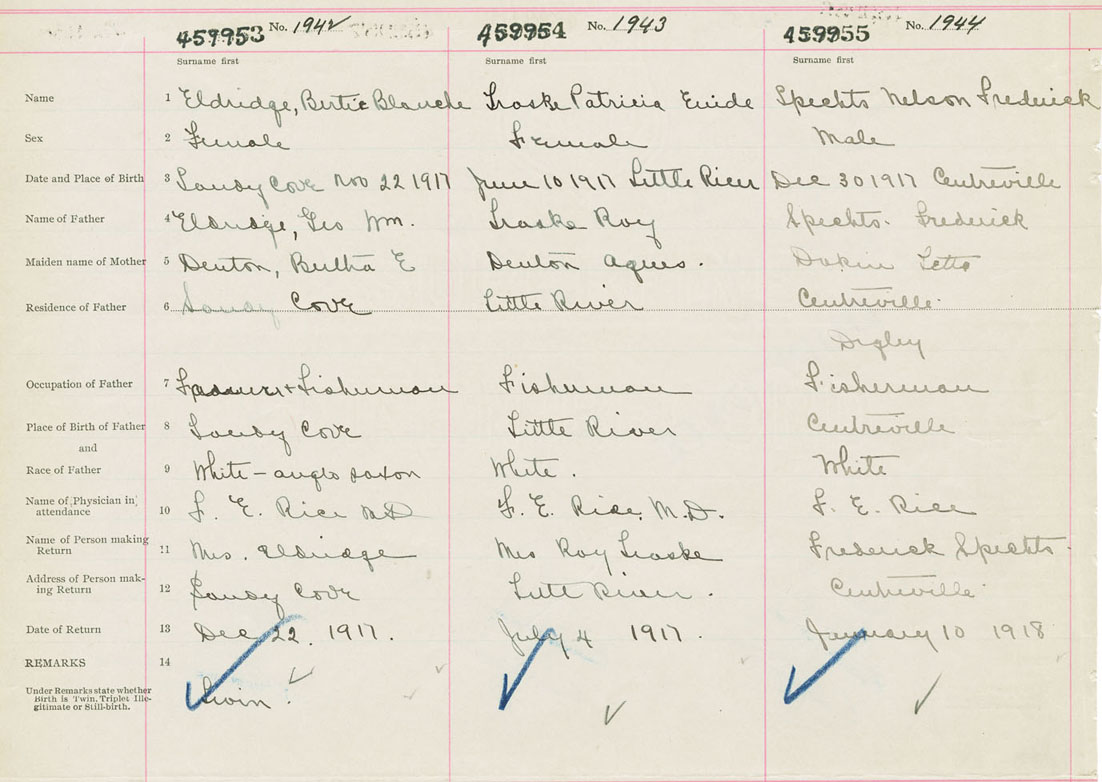 459953 No. 1942 459954 No. 1943 459955 No. 1944
Surname first Surname first Surname first
Name 1 Eldridge, Bertie Blanche Traske Patricia Enide Spechts Nelson Frederick
Sex 2 Female Female Male
Date and Place of Birth 3 Sandy Cove Nov 22 1917 June 10 1917 Little River Dec 30 1917 Centreville
Name of Father 4 Eldridge, Geo Wm. Traske Roy Spechts. Frederick
Maiden name of Mother 5 Denton, Bertha E Denton Agnes. Dakin Letta
Residence of Father 6 Sandy Cove Little River Centreville
Digby
Occupation of Father 7 Farmer + Fisherman Fisherman Fisherman
Place of Birth of Father 8 Sandy Cove Little River Centreville
and
Race of Father 9 White - anglo saxon White. White
Name of Physician in
attendance 10 F. E. Rice MD F. E. Rice, M.D. F. E. Rice
Name of Person making
Return 11 Mrs. Eldridge Mrs Roy Traske Frederick Spechts.
Address of Person mak-
ing Return 12 Sandy Cove River. Centreville
Date of Return 13 Dec 22. 1917. July 4 1917. January 10 1918
REMARKS 14
Under Remarks state whether
Birth is Twin, Triplet Ille-
gitimate or Still-birth. Twin.